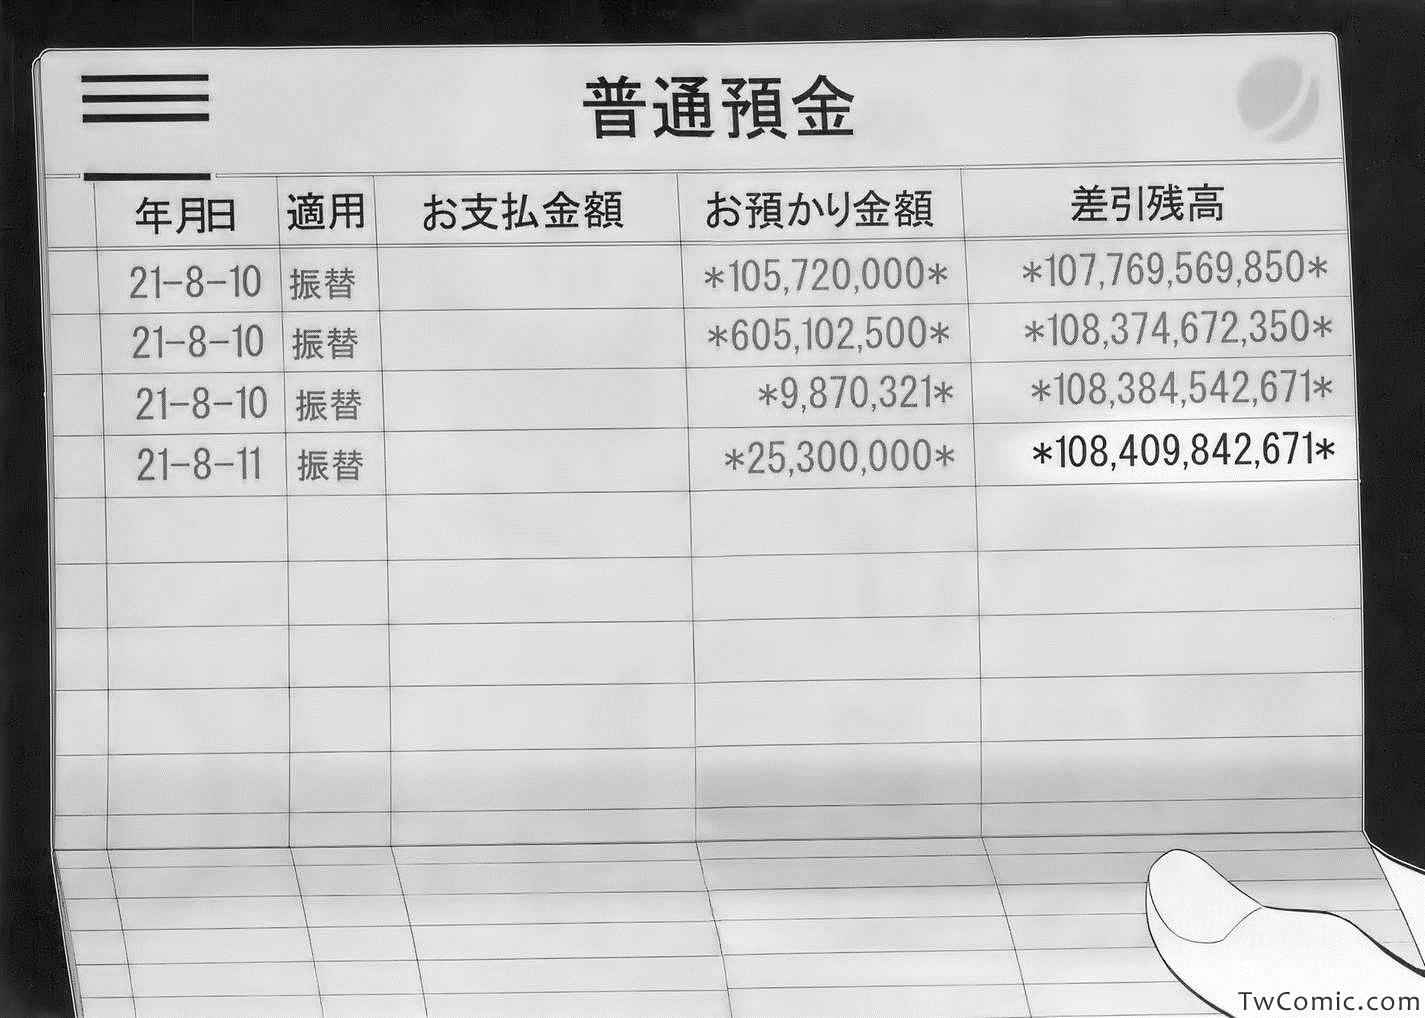 普通預金
年月日 適用 お支払金額 お預かり金額 差引残高
21-8-10 振替 *105,720,000* *107,769,569,850*
21-8-10 振替 *605,102,500* *108,374,672,350*
21-8-10 振替 *9,870,321* *108,384,542,671*
21-8-11 振替 *25,300,000* *108,409,842,671*
TwComic.com